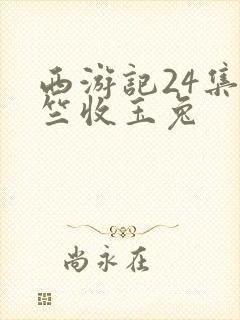 西游記24集
竺收玉兔
尚永在